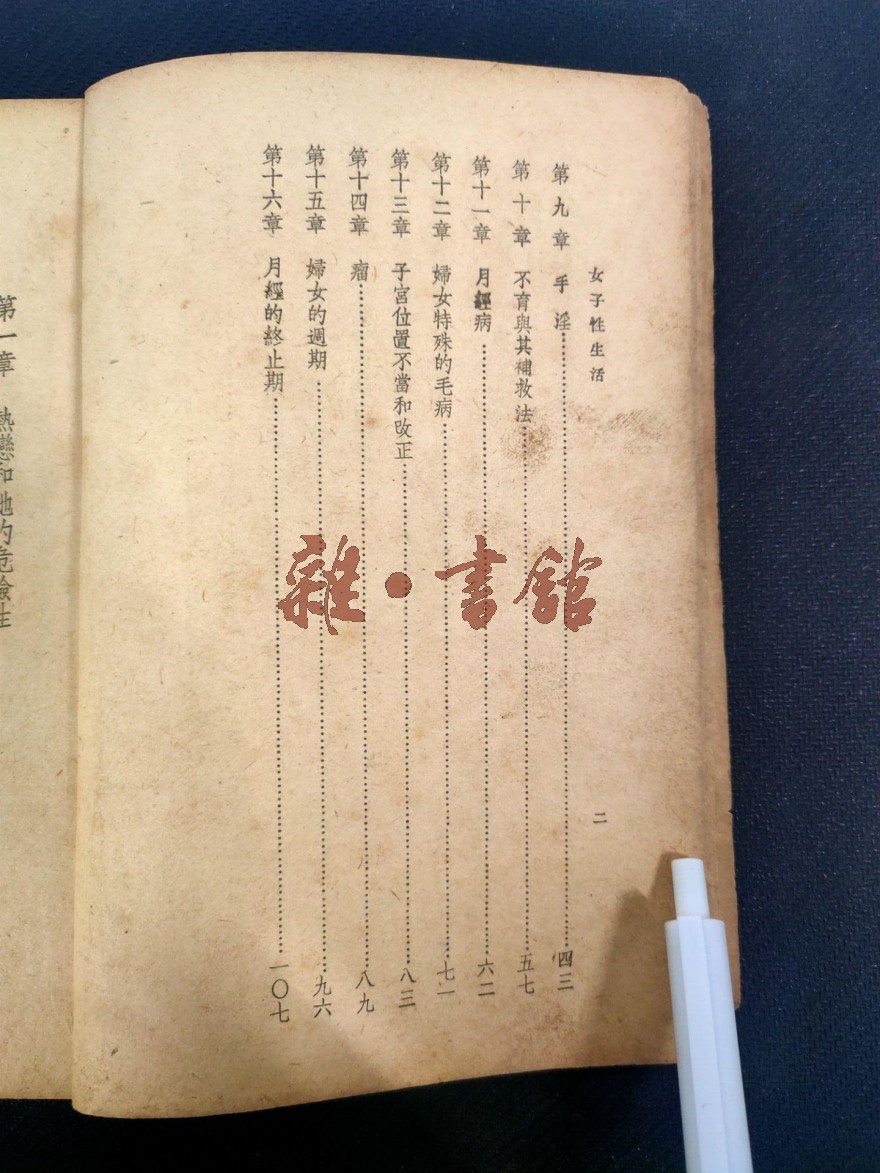 女子性生活
二
第九章 手淫……四三
第十章 不育與其補救法……五七
第十一章 月經病……六二
第十二章 婦女特殊的毛病……七一
第十三章 子宮位置不當和改正……八三
第十四章 瘤……八九
第十五章 婦女的週期……九六
第十六章 月經的終止期……一〇七
第一章 熱戀和她的危險性
雜·書館